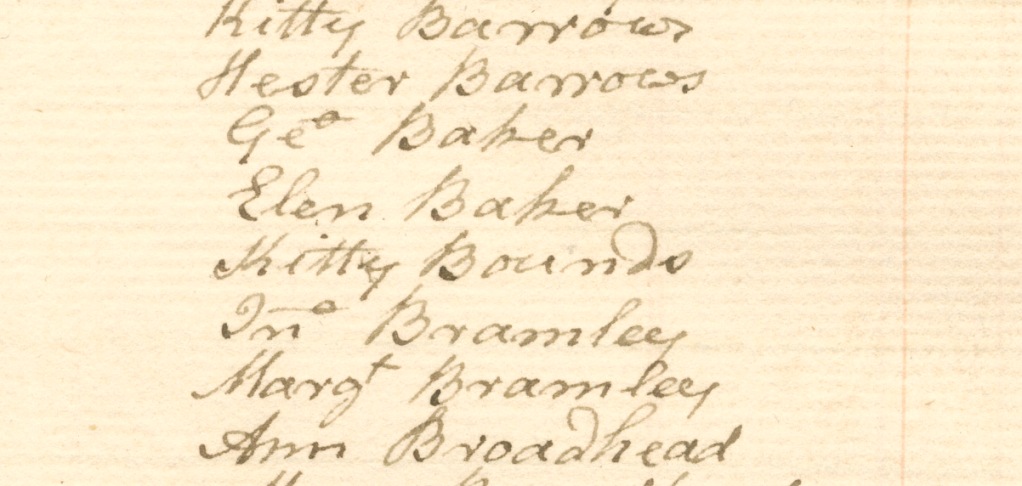 Kitty Barrows
Hester Barrows
Geo Baker
Elen Baker
Kitty Bounds
Jno Bramley
Margt Bramley
Ann Broadhead